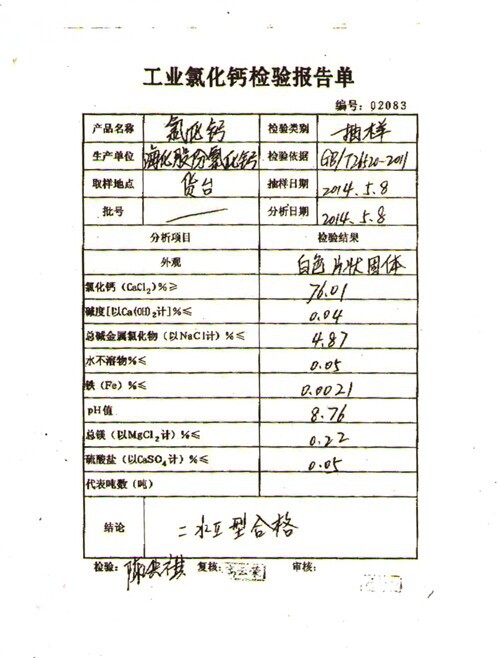 工业氯化钙检验报告单
编号: 02083
产品名称 氯化钙 检验类别 抽样
生产单位 海化股份氯化钙 检验依据 GB/T26520-2011
取样地点 货台 抽样日期 2014.5.8
批号 — 分析日期 2014.5.8
分析项目 检验结果
外观 白色片状固体
氯化钙 (CaCl₂) %≥ 76.01
碱度[以Ca(OH)₂计] %≤ 0.04
总碱金属氯化物 (以NaCl计) %≤ 4.87
水不溶物%≤ 0.05
铁 (Fe) %≤ 0.0021
pH值 8.76
总镁 (以MgCl₂计) %≤ 0.22
硫酸盐 (以CaSO₄计) %≤ 0.05
代表吨数 (吨)
结论 二水Ⅱ型合格
检验: 复核: 审核: